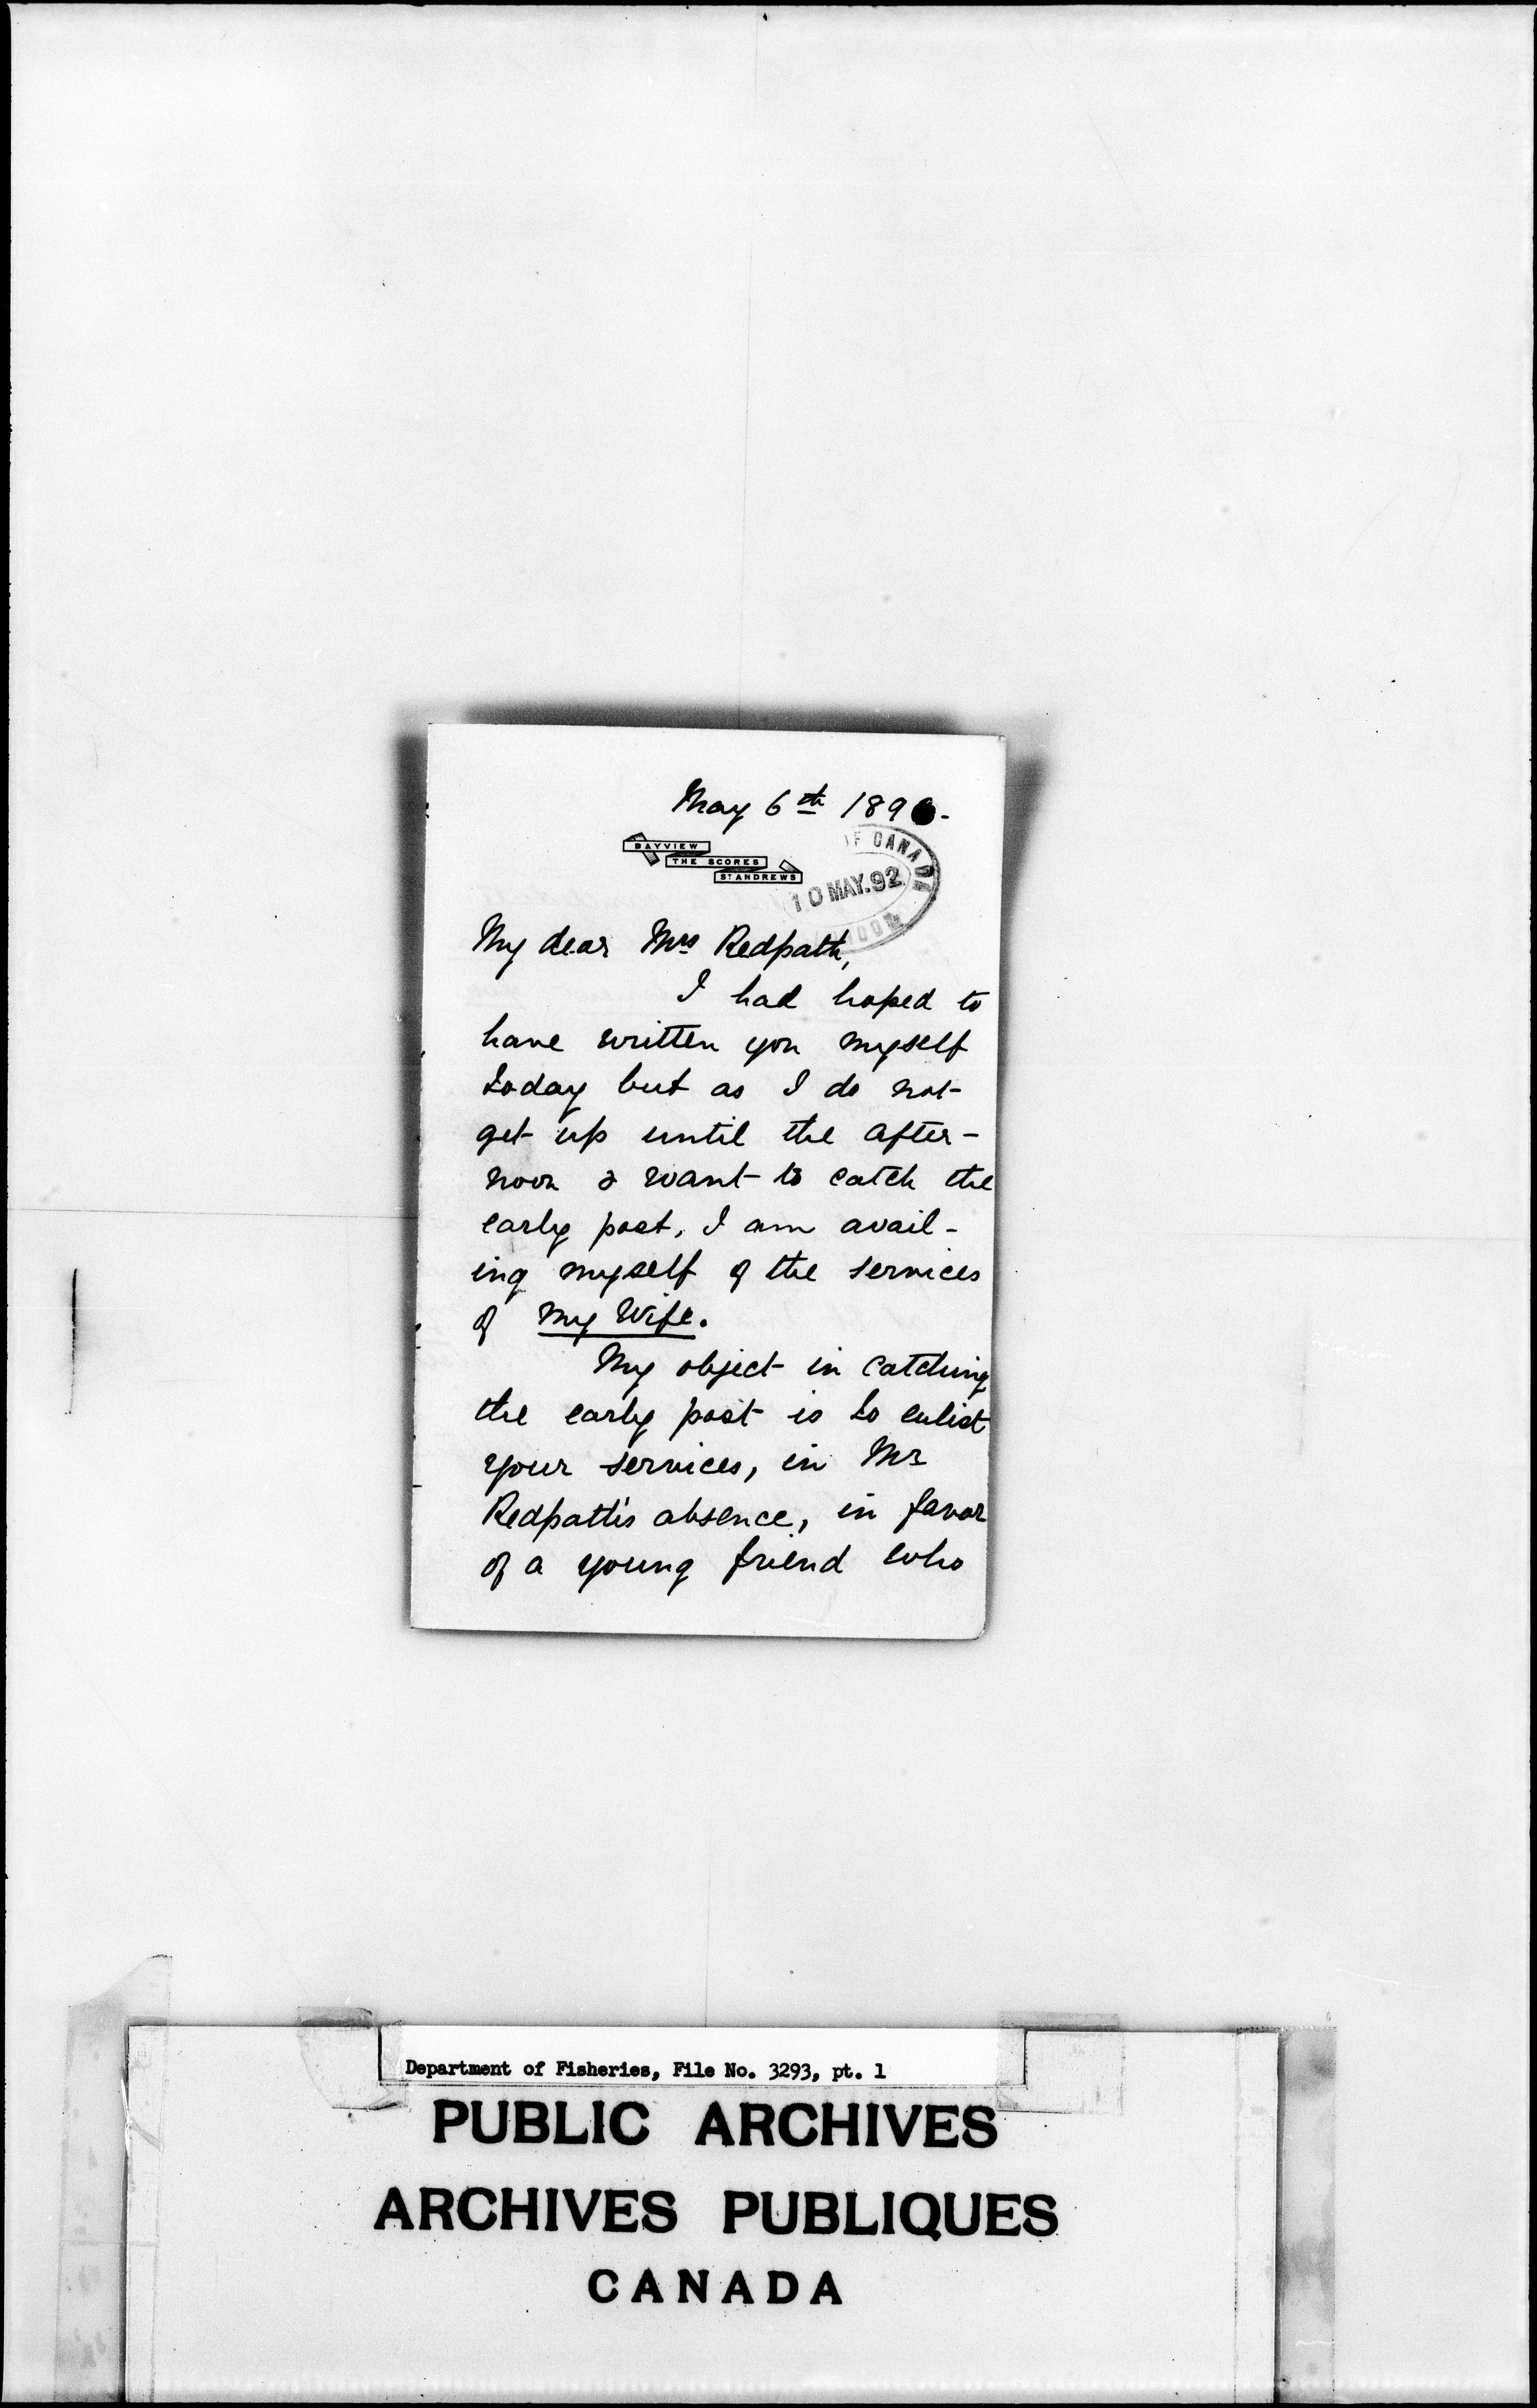 May 6th 189
BAYVIEW
THE SCORES
ST ANDREWS
OF CANADA
10 MAY.92
My dear Mrs Redpath,
I had hoped to
have written you myself
today but as I do not
get up until the after-
noon & want to catch the
early post, I am avail-
ing myself of the services
of my Wife.
My object in catching
the early post is to enlist
your services, in Mr
Redpath's absence, in favor
of a young friend who
Department of Fisheries, File No. 3293, pt. 1
PUBLIC ARCHIVES
ARCHIVES PUBLIQUES
CANADA